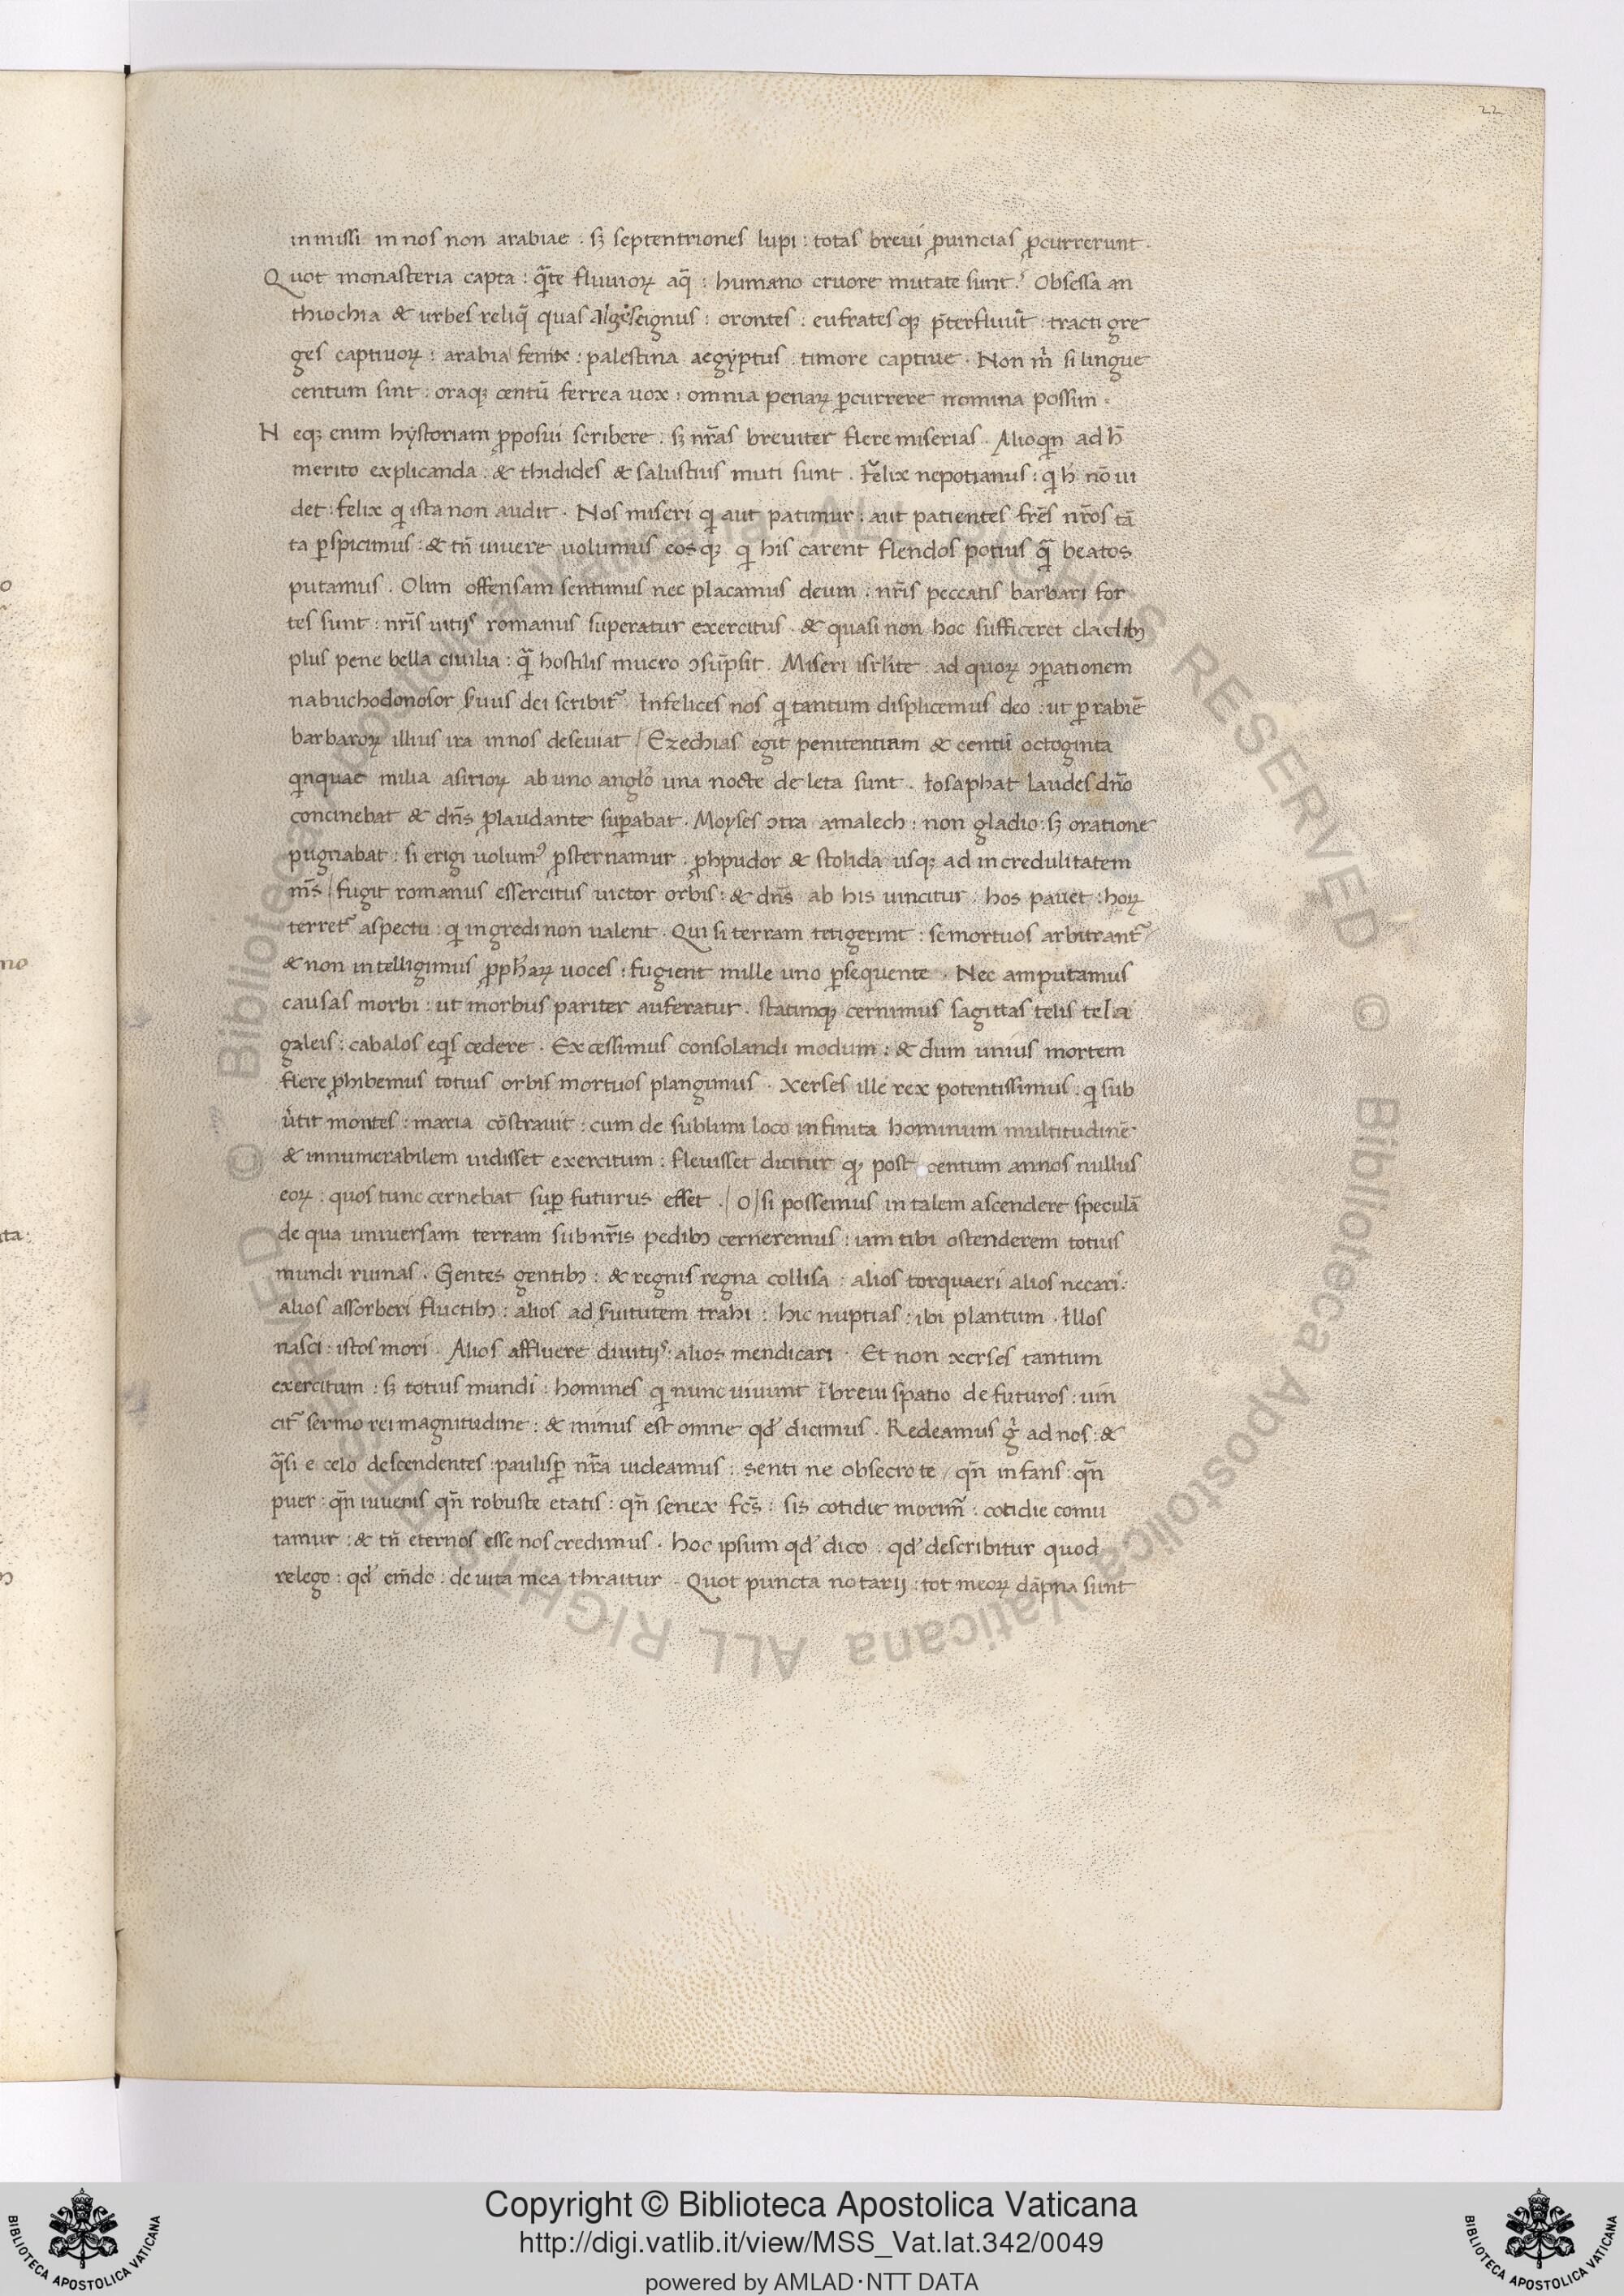 22
inmissi in nos non arabiae . sꝫ septentriones lupi : totas breui ꝓuincias ꝓcurrerunt .
Quot monasteria capta : q̃te fluuioꝝ aq̃ : humano cruore mutate sunt . Obsessa an
thiochia & urbes reliq̃ quas orontes . eufratesqꝫ p̄terfluūt : tracti gre
ges captiuoꝝ : arabia fenix : palestina aegyptus : timore captiue . Non m̊ si lingue
centum sint : oraqꝫ centū ferrea uox : omnia penaꝝ ꝑcurrere nomina possim .
Neqꝫ enim hystoriam ꝓposui scribere : sꝫ nr̄as breuiter flere miserias . Alioqn ad h̄
merito explicanda : & thidides & salustius muti sunt . Felix nepotianus : q h̄ nō ui
det : felix q ista non audit . Nos miseri q aut patimur : aut patientes fr̄es nr̄os tā
ta ꝑspicimus : & tn̄ uiuere uolumus eosqꝫ q his carent flendos potius q̃ beatos
putamus . Olim offensam sentimus nec placamus deum : nr̄is peccatis barbari for
tes sunt : nr̄is uitijs romanus superatur exercitus . & quasi non hoc sufficeret cladibꝫ
plus pene bella ciuilia : q̃ hostilis mucro ɔsūpsit . Miseri isrl̄ite : ad quoꝝ ɔꝑationem
nabuchodonosor s̓uus dei scribit᷑ . Infelices nos q tantum displicemus deo : ut ꝑ rabiē
barbaroꝝ illius ira in nos deseuiat / Ezechias egit penitentiam & centū octoginta
qnquae milia asirioꝝ ab uno anglo una nocte deleta sunt . Iosaphat laudes dn̄o
concinebat & dn̄s ꝓ laudante suꝑabat . Moyses ɔtra amalech : non gladio : sꝫ oratione
pugnabat : si erigi uolumꝰ ꝓsternamur . ꝓhpudor & stolida usqꝫ ad incredulitatem
m̄s / fugit romanus essercitus uictor orbis : & dn̄s ab his uincitur . hos pauet : hoꝝ
terret᷑ aspectu : q ingredi non ualent . Qui si terram tetigerint : se mortuos arbitrant᷑
& non intelligimus ꝓph̄aꝝ uoces : fugient mille uno ꝑsequente . Nec amputamus
causas morbi : ut morbus pariter auferatur . statimqꝫ cernimus sagittas telis tela
galeis : cabalos eqs cedere . Excessimus consolandi modum : & dum unius mortem
flere ꝓhibemus totius orbis mortuos plangimus . Xerses ille rex potentissimus : q sub
u̓tit montes : maria cōstrauit : cum de sublimi loco infinita hominum multitudinē
& innumerabilem uidisset exercitum : fleuisset dicitur qꝫ post centum annos nullus
eoꝝ : quos tunc cernebat suꝑ futurus esset . / O / si possemus in talem ascendere speculā
de qua uniuersam terram sub nr̄is pedibꝫ cerneremus : iam tibi ostenderem totius
mundi ruinas . Gentes gentibꝫ : & regnis regna collisa : alios torquaeri alios necari :
alios assorberi fluctibꝫ : alios ad s̓uitutem trahi : hic nuptias : ibi plantum . Illos
nasci : istos mori . Alios affluere diuitijs : alios mendicari . Et non xerses tantum
exercitum : sꝫ totius mundi : homines q nunc uiuunt ī breui spatio defuturos : uin
cit᷑ sermo rei magnitudine : & minus est omne qd̓ dicimus . Redeamus g̊ ad nos : &
q̃si e celo descendentes : paulisꝑ nr̄a uideamus : senti ne obsecro te / qn̄ infans : qn̄
puer : qn̄ iuuenis qn̄ robuste etatis : qn̄ senex fc̄s : sis cotidie morim̃ : cotidie comu
tamur : & tn̄ eternos esse nos credimus . hoc ipsum qd̓ dico : qd̓ describitur quod
relego : qd̓ em̄do : de uita mea thraitur . Quot puncta notarij : tot meoꝝ dāpna sunt
Copyright © Biblioteca Apostolica Vaticana
http://digi.vatlib.it/view/MSS_Vat.lat.342/0049
powered by AMLAD·NTT DATA